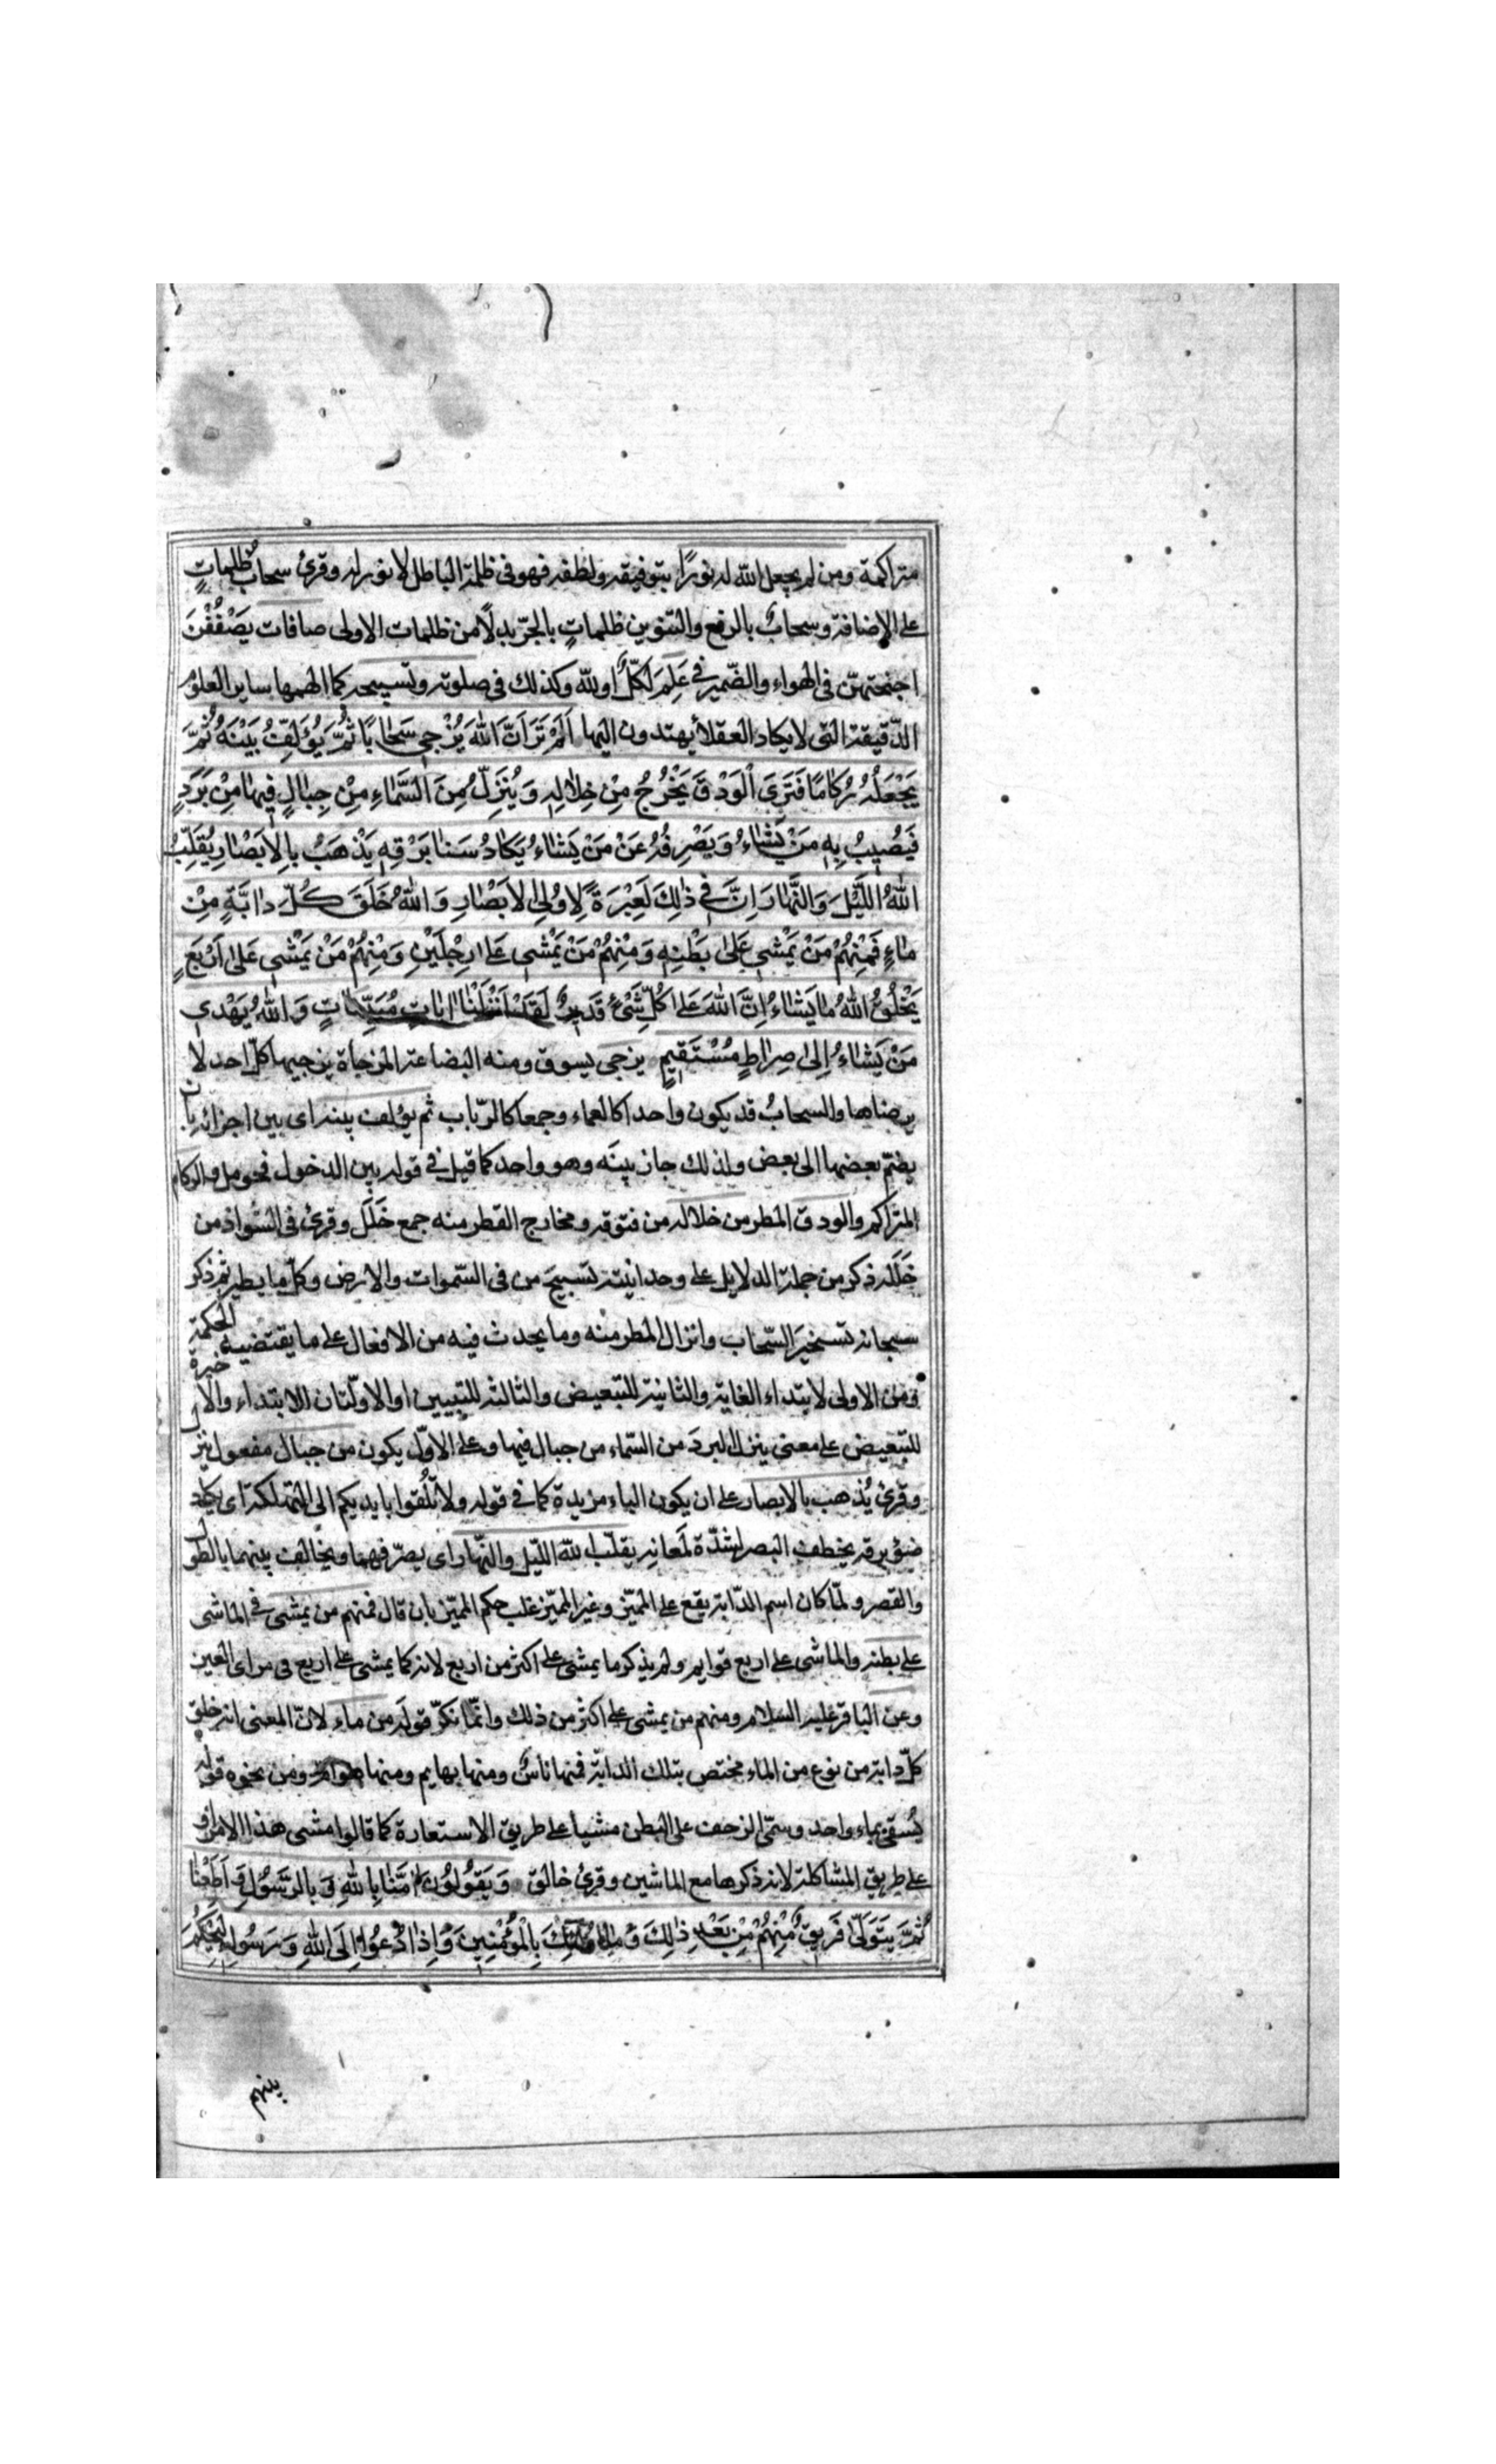 متراكمة ومن لم يجعل الله له نورًا بتوفيقه ولطفه فهو فى ظلمة الباطل لا نور له وقرئ سحابُ ظلماتٍ
على الإضافة وسحابٌ بالرفع والتنوين ظلماتٍ بالجرّ بدلًا من ظلمات الاولى صافات يَصْفُفْنَ
اجنحتهنّ فى الهواء والضّمير فى عَلِمَ لكلٌّ او لله وكذلك فى صلوته وتسبيحه كما الهمها ساير العلوم
الدّقيقة التى لا يكاد العقلاء يهتدون اليها اَلَمْ تَرَ اَنَّ اللهَ يُزْجِي سَحَابًا ثُمَّ يُؤَلِّفُ بَيْنَهُ ثُمَّ
يَجْعَلُهُ رُكَامًا فَتَرَى الْوَدْقَ يَخْرُجُ مِنْ خِلَالِهِ وَيُنَزِّلُ مِنَ السَّمَاءِ مِنْ جِبَالٍ فِيهَا مِنْ بَرَدٍ
فَيُصِيبُ بِهِ مَنْ يَشَاءُ وَيَصْرِفُهُ عَنْ مَنْ يَشَاءُ يَكَادُ سَنَا بَرْقِهِ يَذْهَبُ بِالْاَبْصَارِ يُقَلِّبُ
اللهُ اللَّيْلَ وَالنَّهَارَ اِنَّ فِي ذٰلِكَ لَعِبْرَةً لِاُولِي الْاَبْصَارِ وَاللهُ خَلَقَ كُلَّ دَابَّةٍ مِنْ
مَاءٍ فَمِنْهُمْ مَنْ يَمْشِي عَلَى بَطْنِهِ وَمِنْهُمْ مَنْ يَمْشِي عَلَى رِجْلَيْنِ وَمِنْهُمْ مَنْ يَمْشِي عَلَى اَرْبَعٍ
يَخْلُقُ اللهُ مَا يَشَاءُ اِنَّ اللهَ عَلَى كُلِّ شَيْءٍ قَدِيرٌ لَقَدْ اَنْزَلْنَا اٰيَاتٍ مُبَيِّنَاتٍ وَاللهُ يَهْدِي
مَنْ يَشَاءُ اِلَى صِرَاطٍ مُسْتَقِيمٍ يزجى يسوق ومنه البضاعة المزجاة يزجيها كلّ احد لا
يرضاها والسحابُ قد يكون واحدا كالعماء وجمعا كالرّباب ثم يؤلف بينه اى بين اجزائه بان
يضمّ بعضها الى بعض ولذلك جاز بينَه وهو واحد كما قيل فى قوله بين الدخول فحومل والركام
المتراكم والودق المطر من خلاله من فتوقه ومخارج القطر منه جمع خَلَل وقرئ فى الشواذ من
خَلَله ذكر من جملة الدلايل على وحدانيته تسبيحَ من فى السّموات والارض وكلّ ما يطير ثم ذكر
سبحانه تسخيرَ السّحاب وانزال المطر منه وما يحدث فيه من الافعال على ما يقتضيه الحكمة
ومن الاولى لابتداء الغاية والثانية للتبعيض والثالثة للتبيين او الاوّلتان للابتداء والاخيرة
للتبعيض على معنى ينزل البردَ من السّماء من جبال فيها وعلى الاوّل يكون من جبال مفعول ينزل
وقرئ يُذهب بالابصار على ان يكون الباء مزيدة كما فى قوله ولا تُلقوا بايديكم الى التهلكة اى يكاد
ضوْء برقه يخطف البصر لشدّة لمعانه يقلّب الله اللّيل والنّهار اى يصرّفهما ويخالف بينهما بالطول
والقصر ولمّا كان اسم الدّابة يقع على المميّز وغير المميّز غلب حكم المميّز بان قال فمنهم من يمشى فى الماشى
على بطنه والماشى على اربع قوايم ولم يذكر ما يمشى على اكثر من اربع لانه كما يمشى على اربع فى مراى العين
وعن الباقر عليه السلام ومنهم من يمشى على اكثر من ذلك وانّما نكّر قوله من ماء لانّ المعنى انه خلق
كلّ دابة من نوع من الماء مختص بتلك الدابّة فمنها ناسٌ ومنها بهايم ومنها هوامّ ومن نحوه قوله
يُسقى بماء واحد وسمّى الزحف على البطن مشيا على طريق الاستعارة كما قالوا مشى هذا الامر او
على طريق المشاكلة لانه ذكرها مع الماشين وقرئ خالق وَيَقُولُونَ اٰمَنَّا بِاللهِ وَبِالرَّسُولِ وَاَطَعْنَا
ثُمَّ يَتَوَلَّى فَرِيقٌ مِنْهُمْ مِنْ بَعْدِ ذٰلِكَ وَمَا اُولٰئِكَ بِالْمُؤْمِنِينَ وَاِذَا دُعُوا اِلَى اللهِ وَرَسُولِهِ لِيَحْكُمَ
بينهم